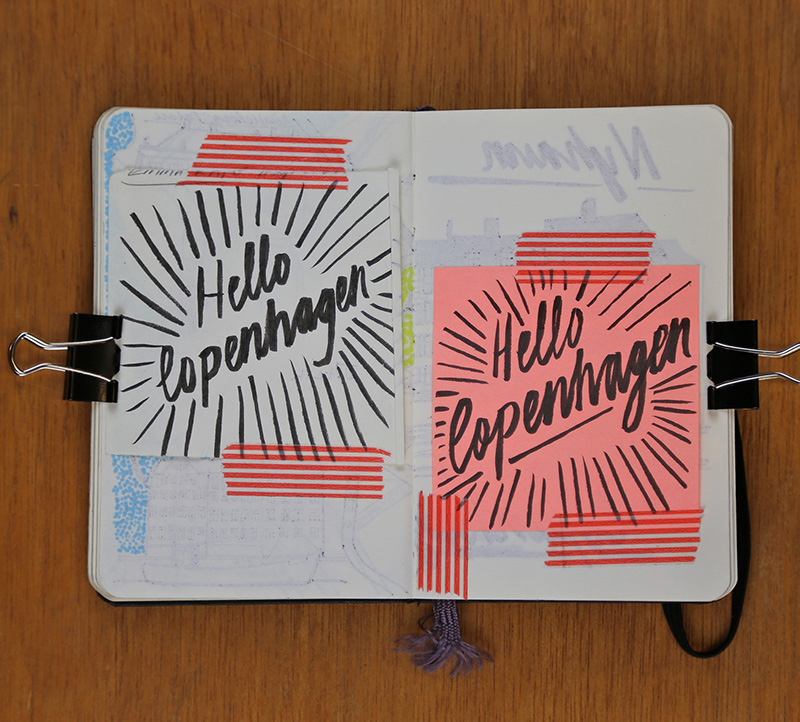 Hello
Copenhagen
Nyhavn
Hello
Copenhagen